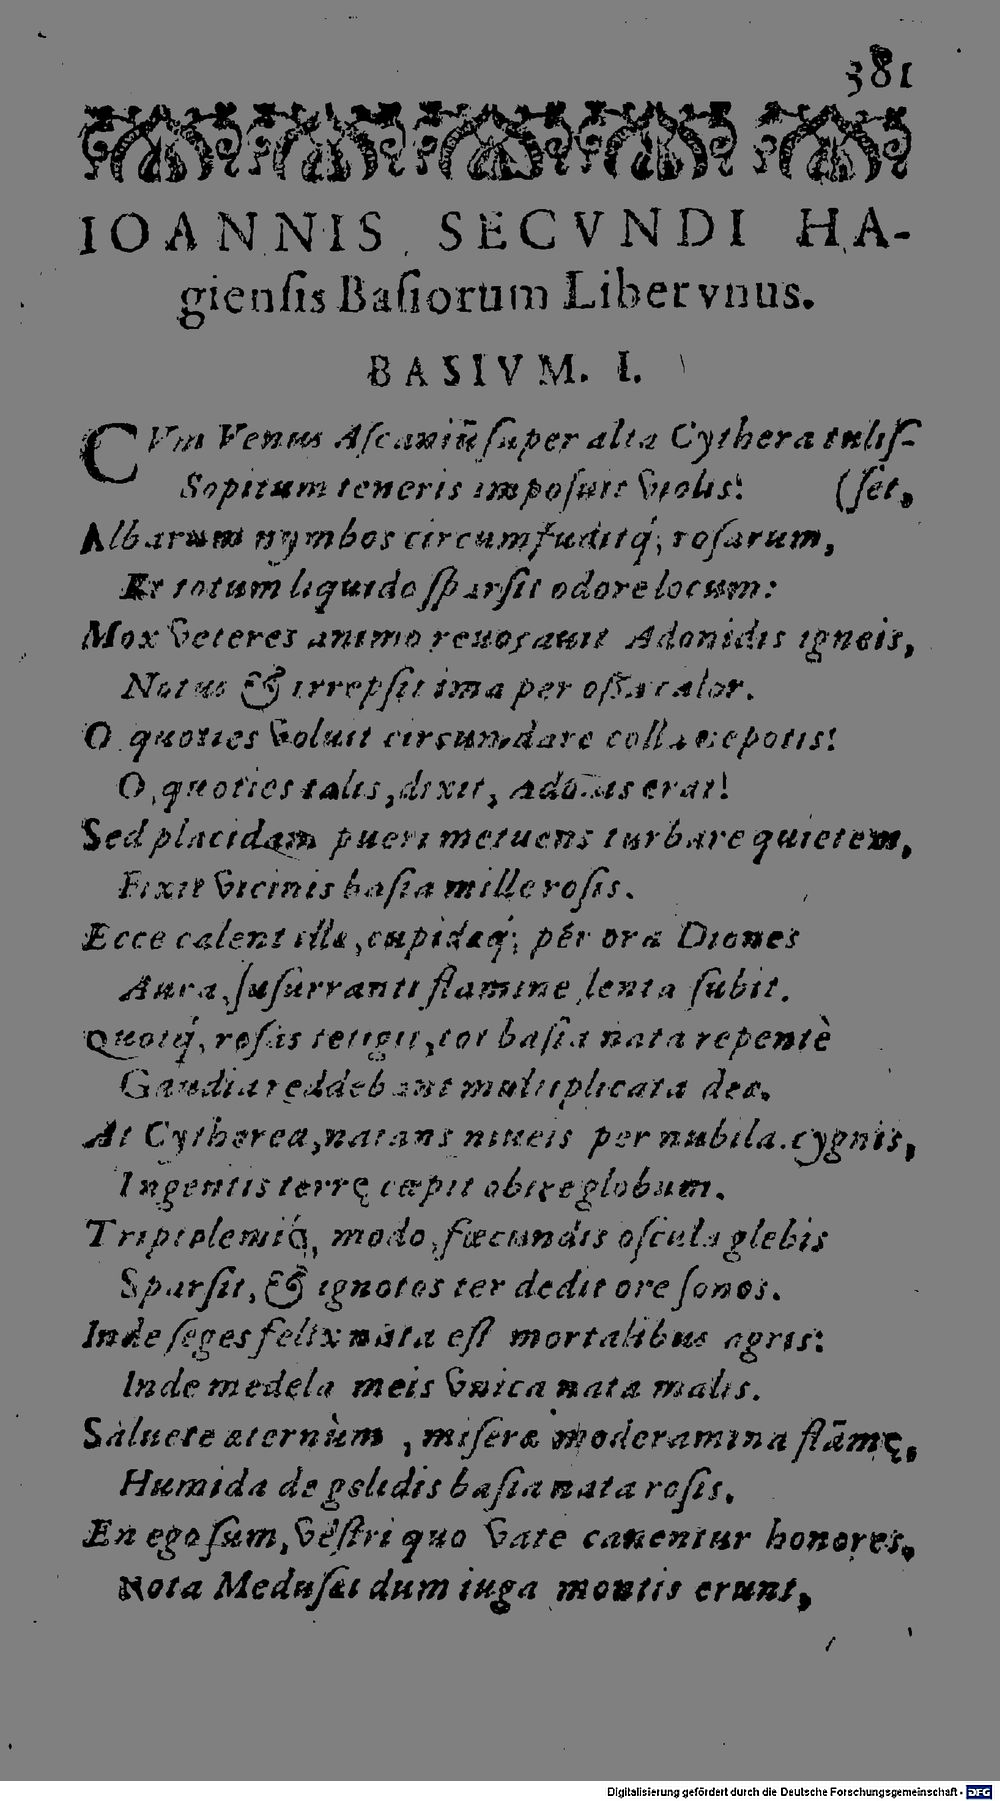 381
IOANNIS SECVNDI HA-
gienſis Baſiorum Liber vnus.
BASIVM. I.
CVm Venus Aſcaniū ſuper alta Cythera tuliſ-
Sopitum teneris impoſuit violis: (ſet,
Albarum nymbos circumfuditq́; roſarum,
Et totum liquido ſparſit odore locum:
Mox veteres animo reuocauit Adonidis igneis,
Notus & irrepſit ima per oſſa calor.
O quoties voluit circumdare colla nepotis!
O, quoties talis, dixit, Adonis erat!
Sed placidam pueri metuens turbare quietem,
Fixit vicinis baſia mille roſis.
Ecce calent illæ, cupidæq́; pér ora Diones
Aura, ſuſurranti flamine lenta ſubit.
Quotq́; roſas tetigit, tot baſia nata repentè
Gaudia reddebant multiplicata deæ.
At Cytherea, natans niueis per nubila cygnis,
Ingentis terrę cœpit obire globum.
Triptolemiq́; modo, fœcundis oſcula glebis
Sparſit, & ignotos ter dedit ore ſonos.
Inde ſeges felix nata eſt mortalibus agris:
Inde medela meis vnica nata malis.
Saluete æternùm, miſeræ moderamina flāmę,
Humida de gelidis baſia nata roſis.
En ego ſum, veſtri quo vate canentur honores,
Nota Meduſæi dum iuga montis erunt,
Digitalisierung gefördert durch die Deutsche Forschungsgemeinschaft - DFG